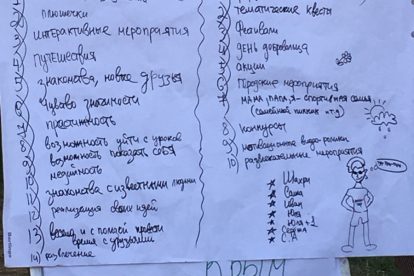 плюшечки
интерактивные мероприятия
путешествия
знакомства, новые друзья
чувство значимости
престижность
возможность уйти с уроков
возможность показать себя
медийность
знакомства с известными людьми
12) реализация своих идей
13) весело и с пользой провести
время с друзьями
14) развлечение
тематические квесты
Фестивали
день добровольца
акции
Городские мероприятия
мама, папа, я - спортивная семья
(семейный пикник и т.д)
8) конкурсы
9) мотивационные видео-ролики
10) развлекательные мероприятия
★ Саша
★ Иван
★ Юля
★ Юля + 1
★ С.А